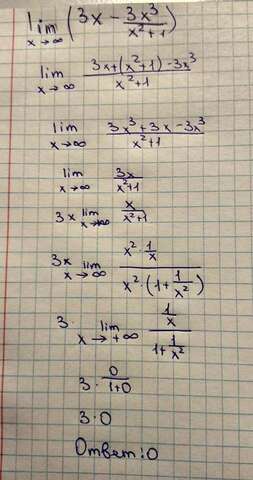 lim x→∞ (3x − 3x³/(x²+1))
lim x→∞ (3x+(x²+1)−3x³)/(x²+1)
lim x→∞ (3x³+3x−3x³)/(x²+1)
lim x→∞ 3x/(x²+1)
3x lim x→∞ x/(x²+1)
3x lim x→∞ (x²·1/x)/(x²·(1+1/x²))
3. lim x→+∞ (1/x)/(1+1/x²)
3·0/(1+0)
3·0
Ответ:0